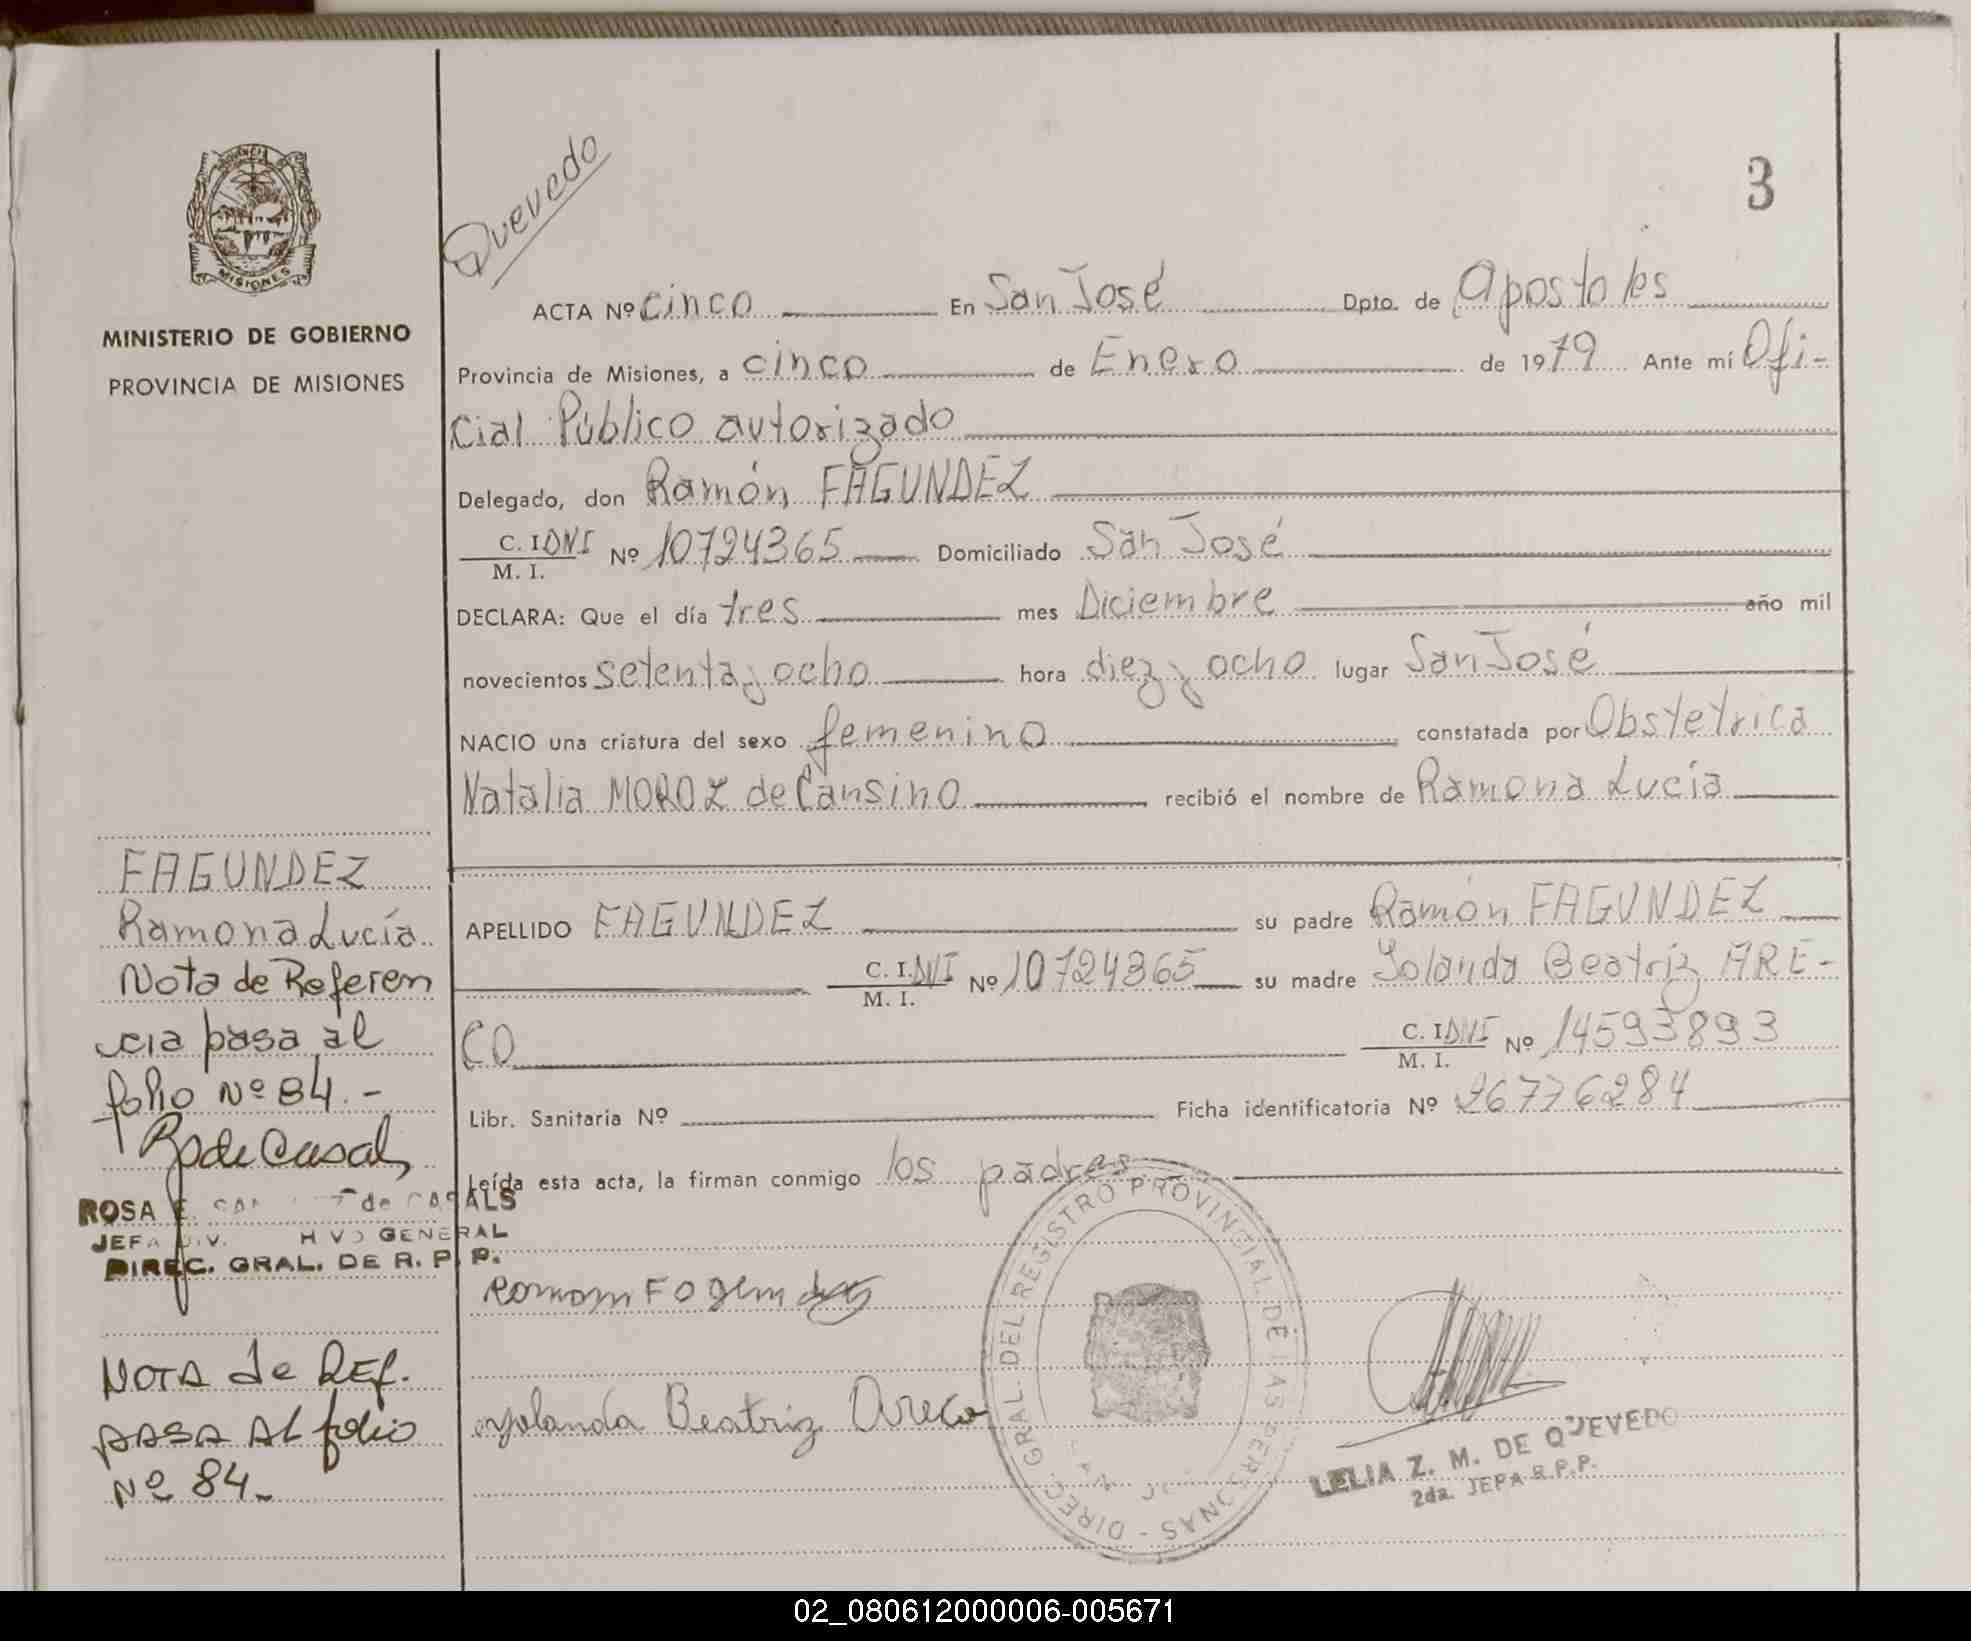 PROVINCIA DE
MISIONES
MINISTERIO DE GOBIERNO
PROVINCIA DE MISIONES
Quevedo
3
ACTA Nº cinco En San José Dpto. de Apostoles
Provincia de Misiones, a cinco de Enero de 1979 Ante mí Ofi-
cial Público autorizado
Delegado, don Ramón FAGUNDEZ
C. I. DNI Nº 10724365 Domiciliado San José
M. I.
DECLARA: Que el día tres mes Diciembre año mil
novecientos setenta y ocho hora diez y ocho lugar San José
NACIO una criatura del sexo femenino constatada por Obstetrica
Natalia MOROZ de Cansino recibió el nombre de Ramona Lucía
APELLIDO FAGUNDEZ su padre Ramón FAGUNDEZ
C. I. DNI Nº 10724365 su madre Yolanda Beatriz ARE-
M. I.
CO C. I. DNI Nº 14593893
M. I.
Libr. Sanitaria Nº Ficha identificatoria Nº 26776284
Leída esta acta, la firman conmigo los padres
Yolanda Beatriz Areco
DIREC. GRAL. DEL REGISTRO PROVINCIAL DE LAS PERSONAS
LELIA Z. M. DE QUEVEDO
2da. JEFA R.P.P.
FAGUNDEZ
Ramona Lucía
Nota de Referen
cia pasa al
folio Nº 84.-
R de Casals
ROSA E. de CASALS
JEFA DIV. GENERAL
DIREC. GRAL. DE R. P. P.
NOTA de REF.
PASA AL folio
Nº 84-
02_080612000006-005671